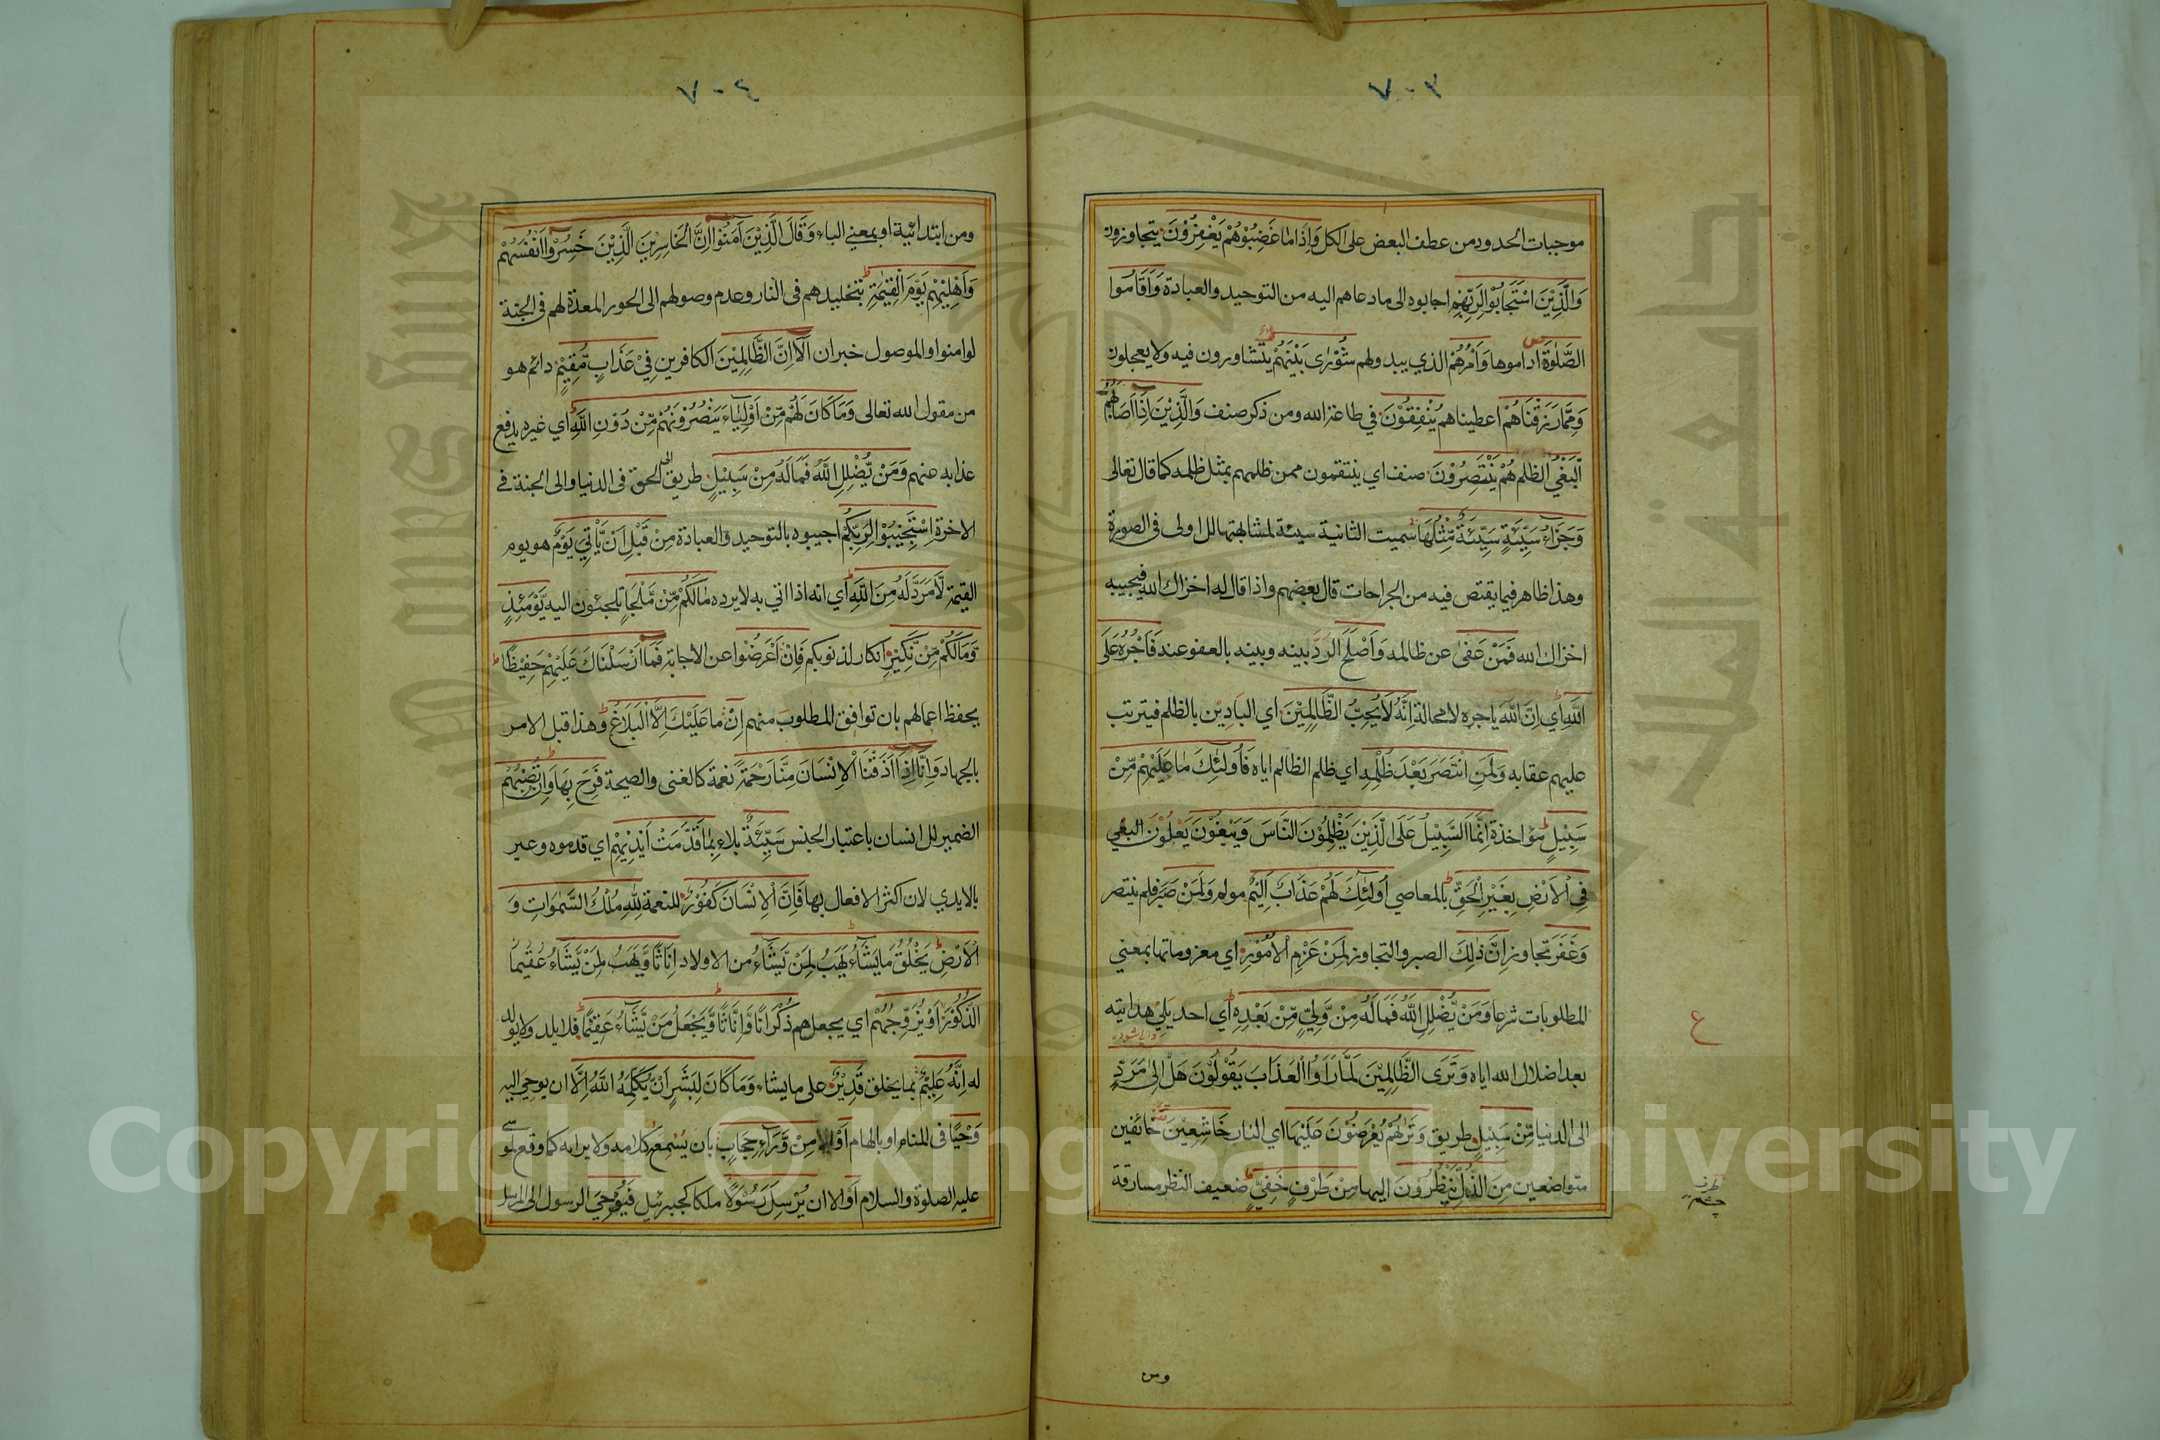 ٧٠٣
موجبات الحدود من عطف البعض على الكل وَاِذَا مَا غَضِبُوْا هُمْ يَغْفِرُوْنَ يتجاوزون
وَالَّذِيْنَ اسْتَجَابُوْا لِرَبِّهِمْ اجابوه الى ما دعاهم اليه من التوحيد والعبادة وَاَقَامُوا
الصَّلٰوةَ اداموها وَاَمْرُهُمْ الذي يبدو لهم شُوْرٰى بَيْنَهُمْ يتشاورون فيه ولا يعجلون
وَمِمَّا رَزَقْنَاهُمْ اعطيناهم يُنْفِقُوْنَ في طاعة الله ومن ذكر صنف وَالَّذِيْنَ اِذَا اَصَابَهُمُ
الْبَغْيُ الظلم هُمْ يَنْتَصِرُوْنَ صنف اي ينتقمون ممن ظلمهم بمثل ظلمه كما قال تعالى
وَجَزَاءُ سَيِّئَةٍ سَيِّئَةٌ مِّثْلُهَا سميت الثانية سيئة لمشابهتها للاولى في الصورة
وهذا ظاهر فيما يقتص فيه من الجراحات قال بعضهم واذا قال له اخزاك الله فيجيبه
اخزاك الله فَمَنْ عَفٰى عن ظالمه وَاَصْلَحَ الود بينه وبينه بالعفو عنه فَاَجْرُهُ عَلَى
اللهِ اي اِنَّ الله ياجره لا محالة اِنَّهُ لَا يُحِبُّ الظَّالِمِيْنَ اي البادِيْن بالظلم فيترتب
عليهم عقابه وَلَمَنِ انْتَصَرَ بَعْدَ ظُلْمِهِ اي ظلم الظالم اياه فَاُولٰئِكَ مَا عَلَيْهِمْ مِّنْ
سَبِيْلٍ مؤاخذة اِنَّمَا السَّبِيْلُ عَلَى الَّذِيْنَ يَظْلِمُوْنَ النَّاسَ وَيَبْغُوْنَ يَعْلُوْنَ البغي
فِى الْاَرْضِ بِغَيْرِ الْحَقِّ بالمعاصي اُولٰئِكَ لَهُمْ عَذَابٌ اَلِيْمٌ مولم وَلَمَنْ صَبَرَ فلم ينتصر
وَغَفَرَ تجاوز اِنَّ ذٰلِكَ الصبر والتجاوز لَمِنْ عَزْمِ الْاُمُوْرِ اي معزوماتها بمعني
المطلوبات شرعا وَمَنْ يُّضْلِلِ اللهُ فَمَا لَهُ مِنْ وَّلِيٍّ مِّنْ بَعْدِهِ اي احد يلي هدايته
بعد اضلال الله اياه وَتَرَى الظَّالِمِيْنَ لَمَّا رَاَوُا الْعَذَابَ يَقُوْلُوْنَ هَلْ اِلٰى مَرَدٍّ
الى الدنيا مِّنْ سَبِيْلٍ طريق وَتَرٰهُمْ يُعْرَضُوْنَ عَلَيْهَا اي النار خَاشِعِيْنَ خائفين
متواضعين مِنَ الذُّلِّ يَنْظُرُوْنَ اليها مِنْ طَرْفٍ خَفِيٍّ ضعيف النظر مسارقة
ع
ومن
٧٠٤
ومن ابتدائية او بمعني الباء وَقَالَ الَّذِيْنَ اٰمَنُوْا اِنَّ الْخَاسِرِيْنَ الَّذِيْنَ خَسِرُوْا اَنْفُسَهُمْ
وَاَهْلِيْهِمْ يَوْمَ الْقِيٰمَةِ بتخليدهم في النار وعدم وصولهم الى الحور المعدة لهم في الجنة
لو امنوا والموصول خبر ان اَلَا اِنَّ الظَّالِمِيْنَ الكافرين فِيْ عَذَابٍ مُّقِيْمٍ دائم هو
من مقول الله تعالى وَمَا كَانَ لَهُمْ مِّنْ اَوْلِيَاءَ يَنْصُرُوْنَهُمْ مِّنْ دُوْنِ اللهِ اي غيره يدفع
عذابه عنهم وَمَنْ يُّضْلِلِ اللهُ فَمَا لَهُ مِنْ سَبِيْلٍ طريق الى الحق في الدنيا والى الجنة في
الاخرة اِسْتَجِيْبُوْا لِرَبِّكُمْ اجيبوه بالتوحيد والعبادة مِنْ قَبْلِ اَنْ يَّاْتِيَ يَوْمٌ هو يوم
القيمة لَّا مَرَدَّ لَهُ مِنَ اللهِ اي انه اذا اتي به لا يرده مَا لَكُمْ مِّنْ مَّلْجَاٍ تلجئون اليه يَوْمَئِذٍ
وَمَا لَكُمْ مِّنْ نَّكِيْرٍ انكار لذنوبكم فَاِنْ اَعْرَضُوْا عن الاجابة فَمَا اَرْسَلْنَاكَ عَلَيْهِمْ حَفِيْظًا
يحفظ اعمالهم بان توافق المطلوب منهم اِنْ ما عَلَيْكَ اِلَّا الْبَلَاغُ وهذا قبل الامر
بالجهاد وَاِنَّا اِذَا اَذَقْنَا الْاِنْسَانَ مِنَّا رَحْمَةً نعمة كالغنى والصحة فَرِحَ بِهَا وَاِنْ تُصِبْهُمْ
الضمير للانسان باعتبار الجنس سَيِّئَةٌ بلاء بِمَا قَدَّمَتْ اَيْدِيْهِمْ اي قدموه وعبر
بالايدي لان اكثر الافعال بها فَاِنَّ الْاِنْسَانَ كَفُوْرٌ للنعمة لِلّٰهِ مُلْكُ السَّمٰوَاتِ وَ
الْاَرْضِ يَخْلُقُ مَا يَشَاءُ يَهَبُ لِمَنْ يَّشَاءُ من الاولاد اِنَاثًا وَّيَهَبُ لِمَنْ يَّشَاءُ عَقِيْمًا
الذُّكُوْرَ اَوْ يُزَوِّجُهُمْ اي يجعلهم ذُكْرَانًا وَّاِنَاثًا وَّيَجْعَلُ مَنْ يَّشَاءُ عَقِيْمًا فلا يلد ولا يولد
له اِنَّهُ عَلِيْمٌ بما يخلق قَدِيْرٌ على ما يشاء وَمَا كَانَ لِبَشَرٍ اَنْ يُّكَلِّمَهُ اللهُ اِلَّا ان يوحي اليه
وَحْيًا في المنام او بالهام اَوْ الا مِنْ وَّرَاءِ حِجَابٍ بان يسمعه كلامه ولا يراه كما وقع لموسى
عليه الصلوة والسلام اَوْ الا ان يُرْسِلَ رَسُوْلًا ملكا كجبرئيل فَيُوْحِيَ الرسول الى المرسل
Copyright © King Saud University